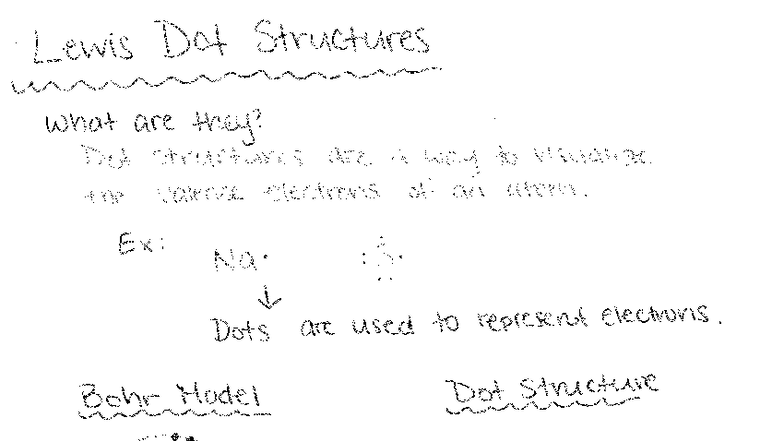 Lewis Dot Structures
What are they?
Dot structures are a way to visualize
the valence electrons of an atom.
Ex: Na· :S·
↓
Dots are used to represent electrons.
Bohr Model Dot Structure